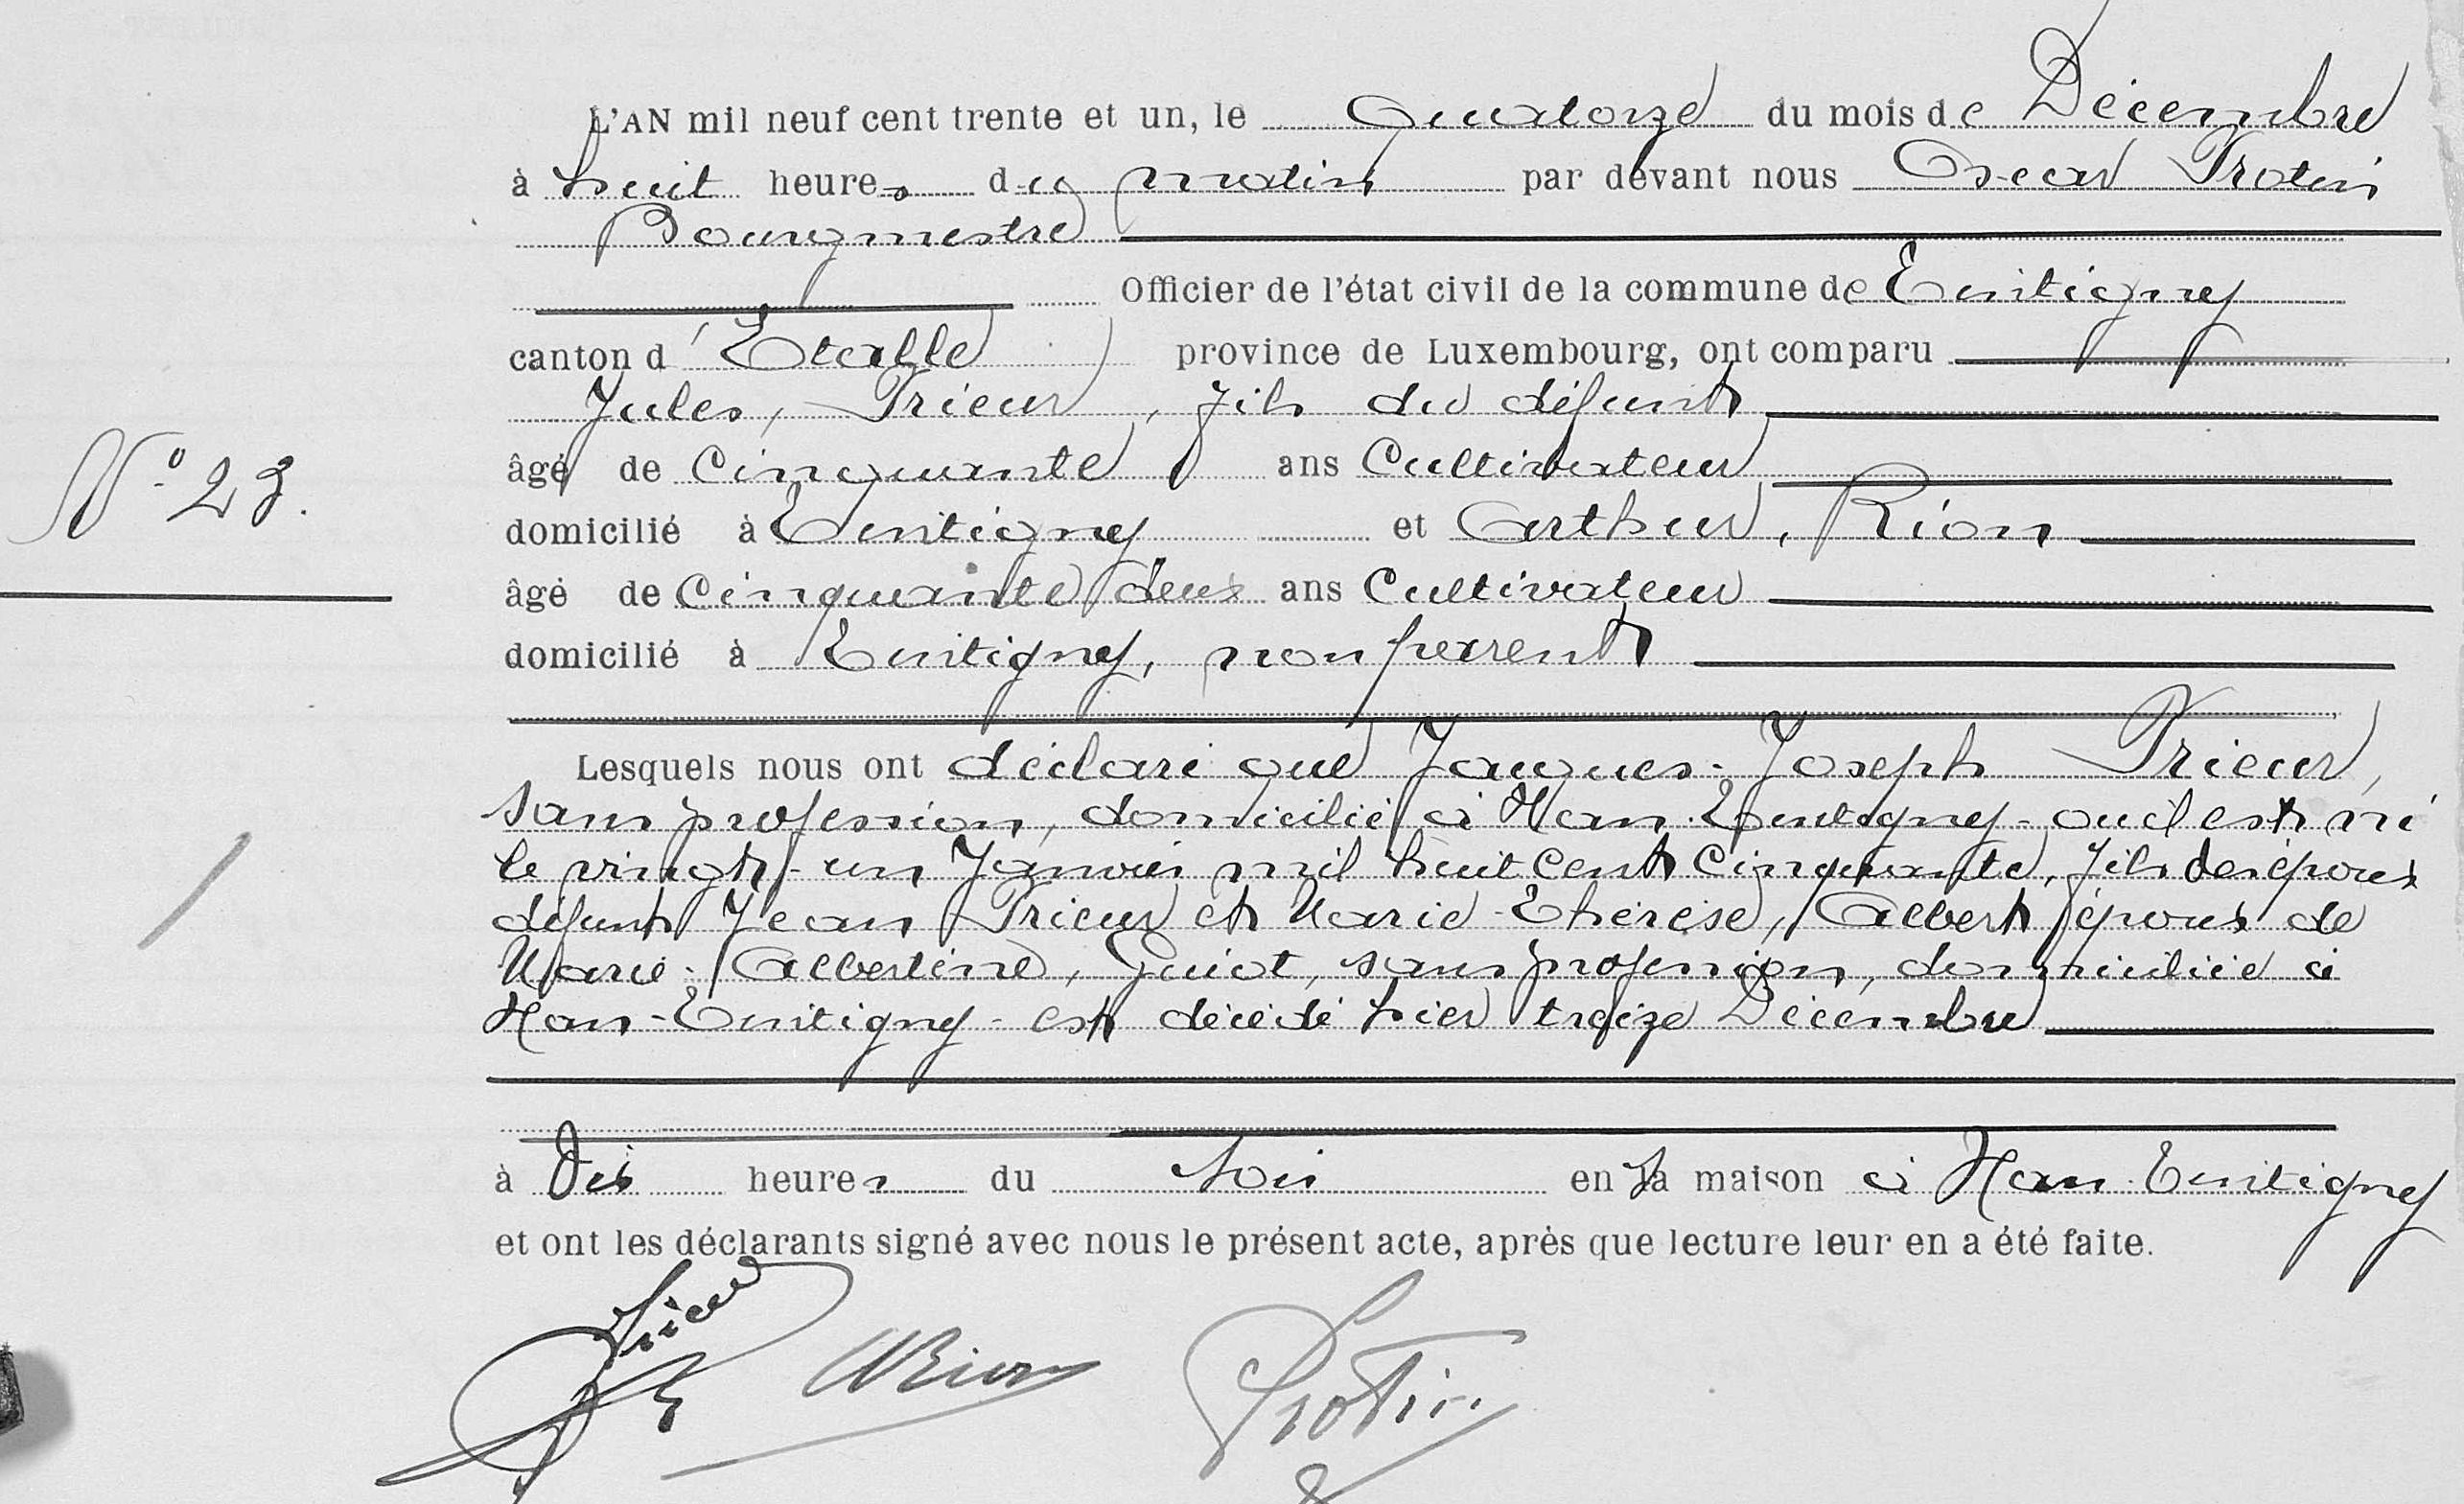 L'AN mil neuf cent trente et un, le Quatorze du mois de Décembre
à huit heures du matin par devant nous Oscar Protin
Bourgmestre
Officier de l'état civil de la commune de Tintigny
canton d'Etalle province de Luxembourg, ont comparu
Jules, Prieur, fils du défunt
âgé de Cinquante ans Cultivateur
N° 23.
domicilié à Tintigny et Arthur, Rion
âgé de Cinquante deux ans Cultivateur
domicilié à Tintigny, non parent
Lesquels nous ont déclaré que Jacques-Joseph Prieur,
sans profession, domicilié à Han-Tintigny-où il est né
le vingt-un Janvier mil huit cent Cinquante, fils des époux
défunt Jean Prieur et Marie-Thérèse, Albert, époux de
Marie-Albertine, Guiot, sans profession, domiciliée à
Han-Tintigny-est décédé hier treize Décembre
à Dix heures du soir en sa maison à Han-Tintigny
et ont les déclarants signé avec nous le présent acte, après que lecture leur en a été faite.
Prieur ARion Protin